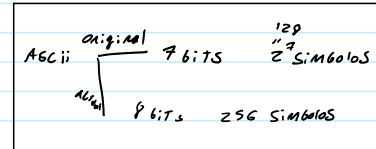 128
"
ASCii original 7 bits 2⁷ simbolos
actual 8 biTs 256 Simbolos